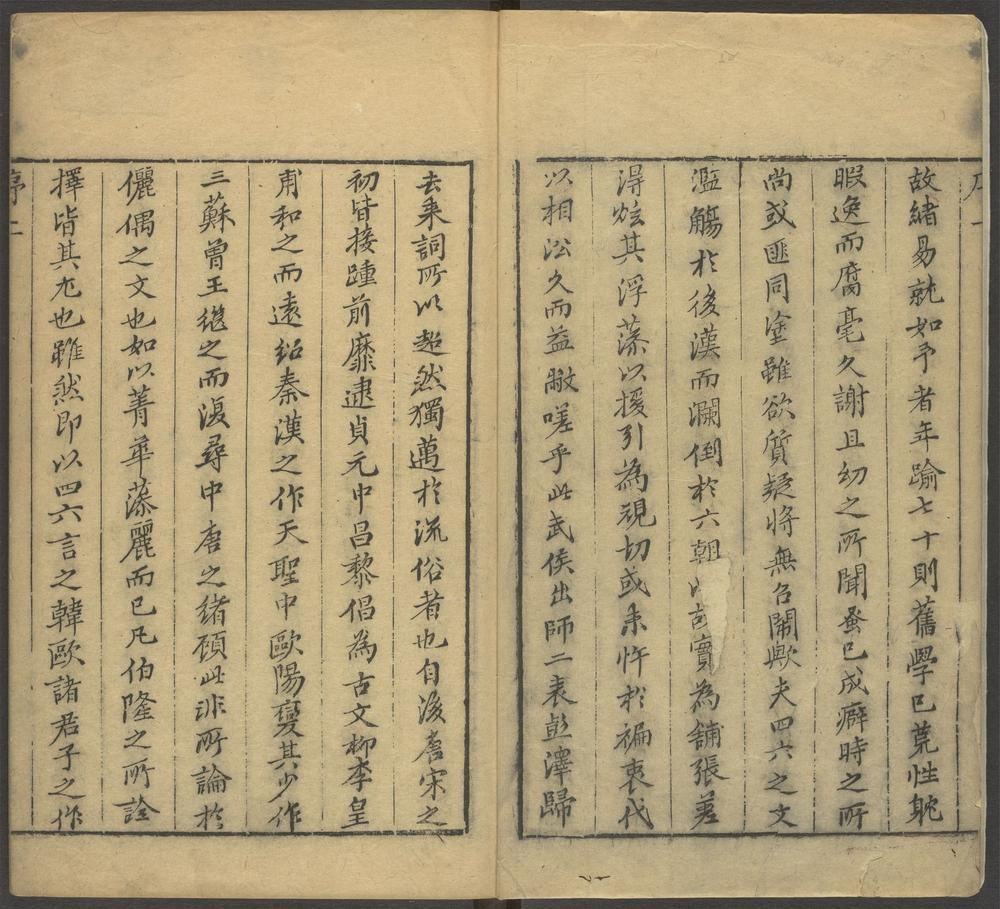 序一
故緒易就如予者年踰七十則舊學已荒性耽
暇逸而腐毫久謝且幼之所聞蚤已成癖時之所
尚或匪同塗雖欲質疑將無召鬧歟夫四六之文
濫觴於後漢而瀾倒於六朝實為鋪張差
淂炫其浮藻以援引為規切或未忤於褊衷代
以相沿久而益敝嗟乎此武侯出師二表彭澤歸
去來詞所以超然獨邁於流俗者也自後唐宋之
初皆接踵前靡逮貞元中昌黎倡為古文柳李皇
甫和之而遠紹秦漢之作天聖中歐陽變其少作
三蘇曾王繼之而復尋中唐之緒顧此非所論於
儷偶之文也如以菁華藻麗而已凡伯隆之所詮
擇皆其尤也雖然即以四六言之韓歐諸君子之作
序二